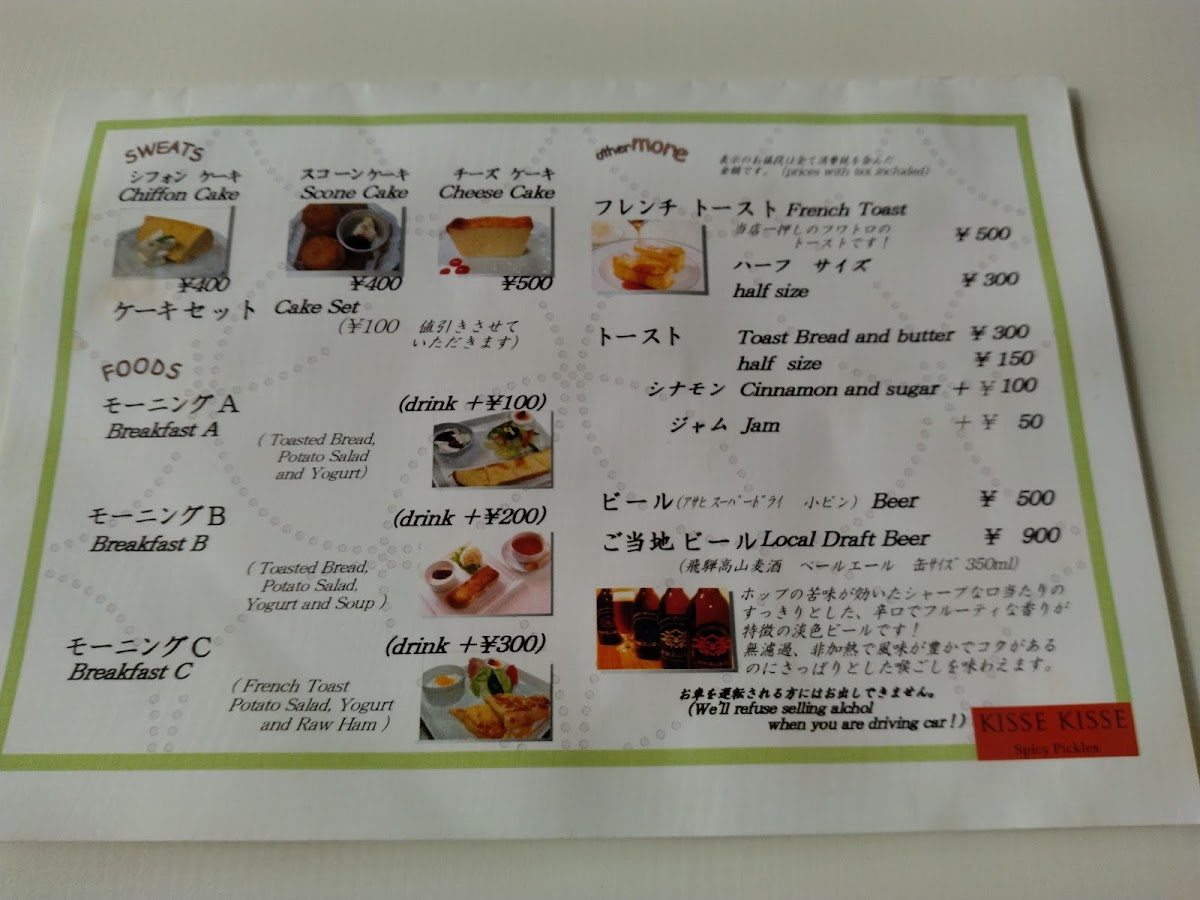 SWEATS
シフォン ケーキ
Chiffon Cake
¥400
スコーンケーキ
Scone Cake
¥400
チーズ ケーキ
Cheese Cake
¥500
ケーキセット Cake Set
(¥100 値引きさせて
いただきます)
FOODS
モーニングA (drink +¥100)
Breakfast A
( Toasted Bread,
Potato Salad
and Yogurt)
モーニングB (drink +¥200)
Breakfast B
( Toasted Bread,
Potato Salad,
Yogurt and Soup )
モーニングC (drink +¥300)
Breakfast C
( French Toast
Potato Salad, Yogurt
and Raw Ham )
other more
表示のお値段は全て消費税を含んだ
金額です。 (prices with tax included)
フレンチ トースト French Toast
当店一押しのフワトロの
トーストです! ¥500
ハーフ サイズ
half size ¥300
トースト Toast Bread and butter ¥300
half size ¥150
シナモン Cinnamon and sugar +¥100
ジャム Jam +¥ 50
ビール(アサヒ スーパードライ 小ビン) Beer ¥ 500
ご当地 ビール Local Draft Beer ¥ 900
(飛騨高山麦酒 ペールエール 缶サイズ 350ml)
ホップの苦味が効いたシャープな口当たりの
すっきりとした、辛口でフルーティな香りが
特徴の淡色ビールです!
無濾過、非加熱で風味が豊かでコクがある
のにさっぱりとした喉ごしを味わえます。
お車を運転される方にはお出しできません。
(We'll refuse selling alchol
when you are driving car!)
KISSE KISSE
Spicy Pickles